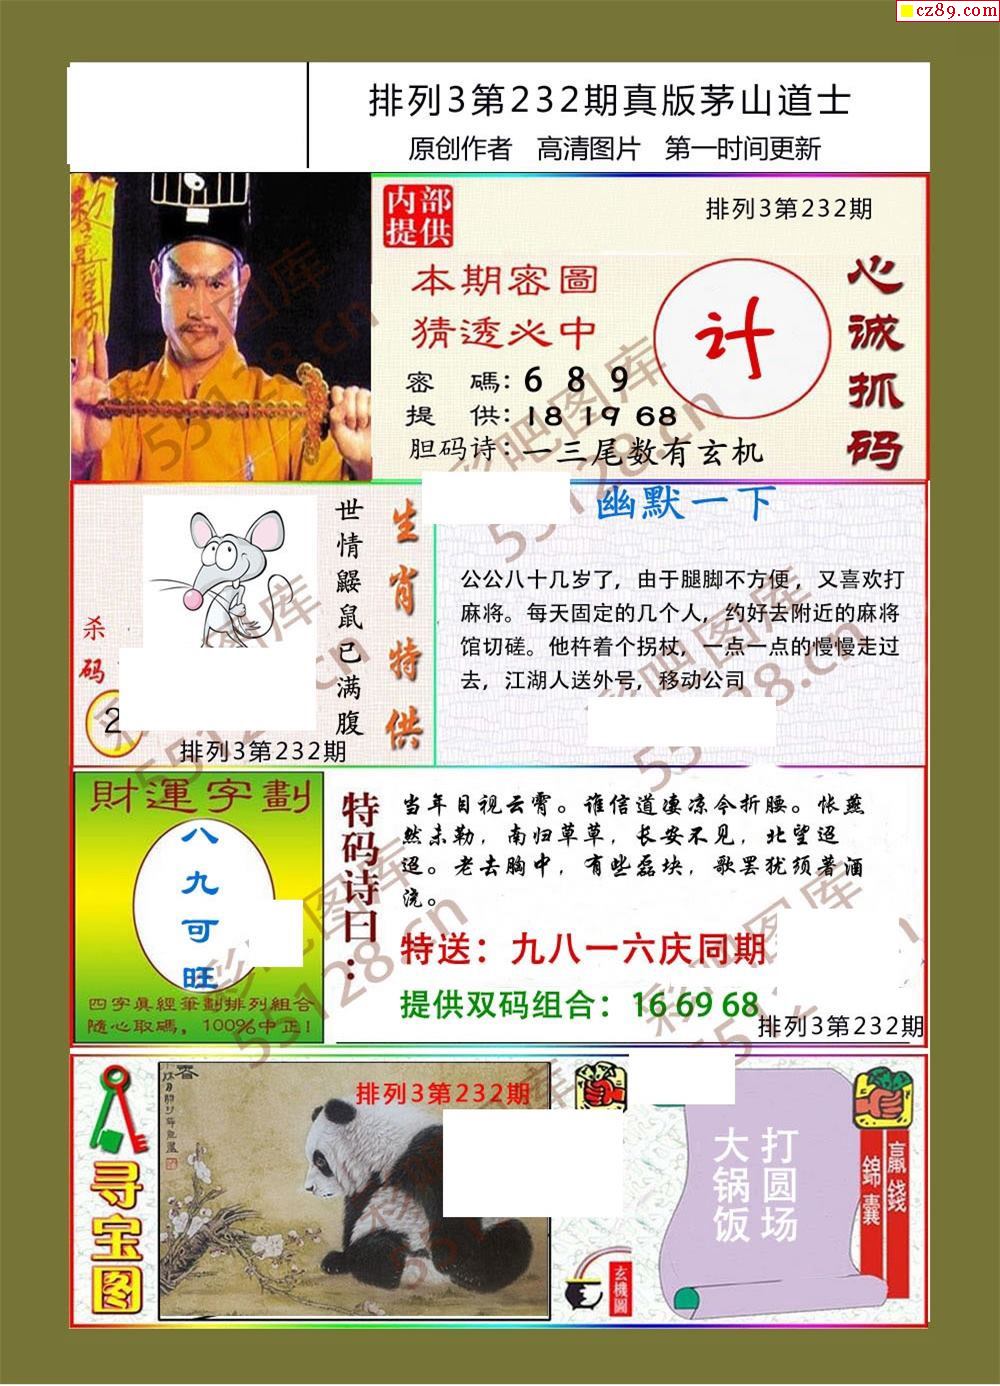 cz89.com
排列3第232期真版茅山道士
原创作者 高清图片 第一时间更新
内部
提供
排列3第232期
本期密圖
猜透必中
计
心诚抓码
密 碼：6 8 9
提 供：18 19 68
胆码诗：一三尾数有玄机
杀
码
2
世情鼹鼠已满腹
生肖特供
排列3第232期
幽默一下
公公八十几岁了，由于腿脚不方便，又喜欢打
麻将。每天固定的几个人，约好去附近的麻将
馆切磋。他杵着个拐杖，一点一点的慢慢走过
去，江湖人送外号，移动公司
財運字劃
八
九
可
旺
四字真經筆劃排列組合
隨心取碼，100%中正!
特码诗曰：
当年目视云霄。谁信道凄凉今折腰。怅燕
然未勒，南归草草，长安不见，北望迢
迢。老去胸中，有些磊块，歌罢犹须著酒
浇。
特送：九八一六庆同期
提供双码组合：16 69 68
排列3第232期
寻宝图
排列3第232期
玄機圖
打圆场
大锅饭
贏錢
錦囊
彩吧图库
55128.cn